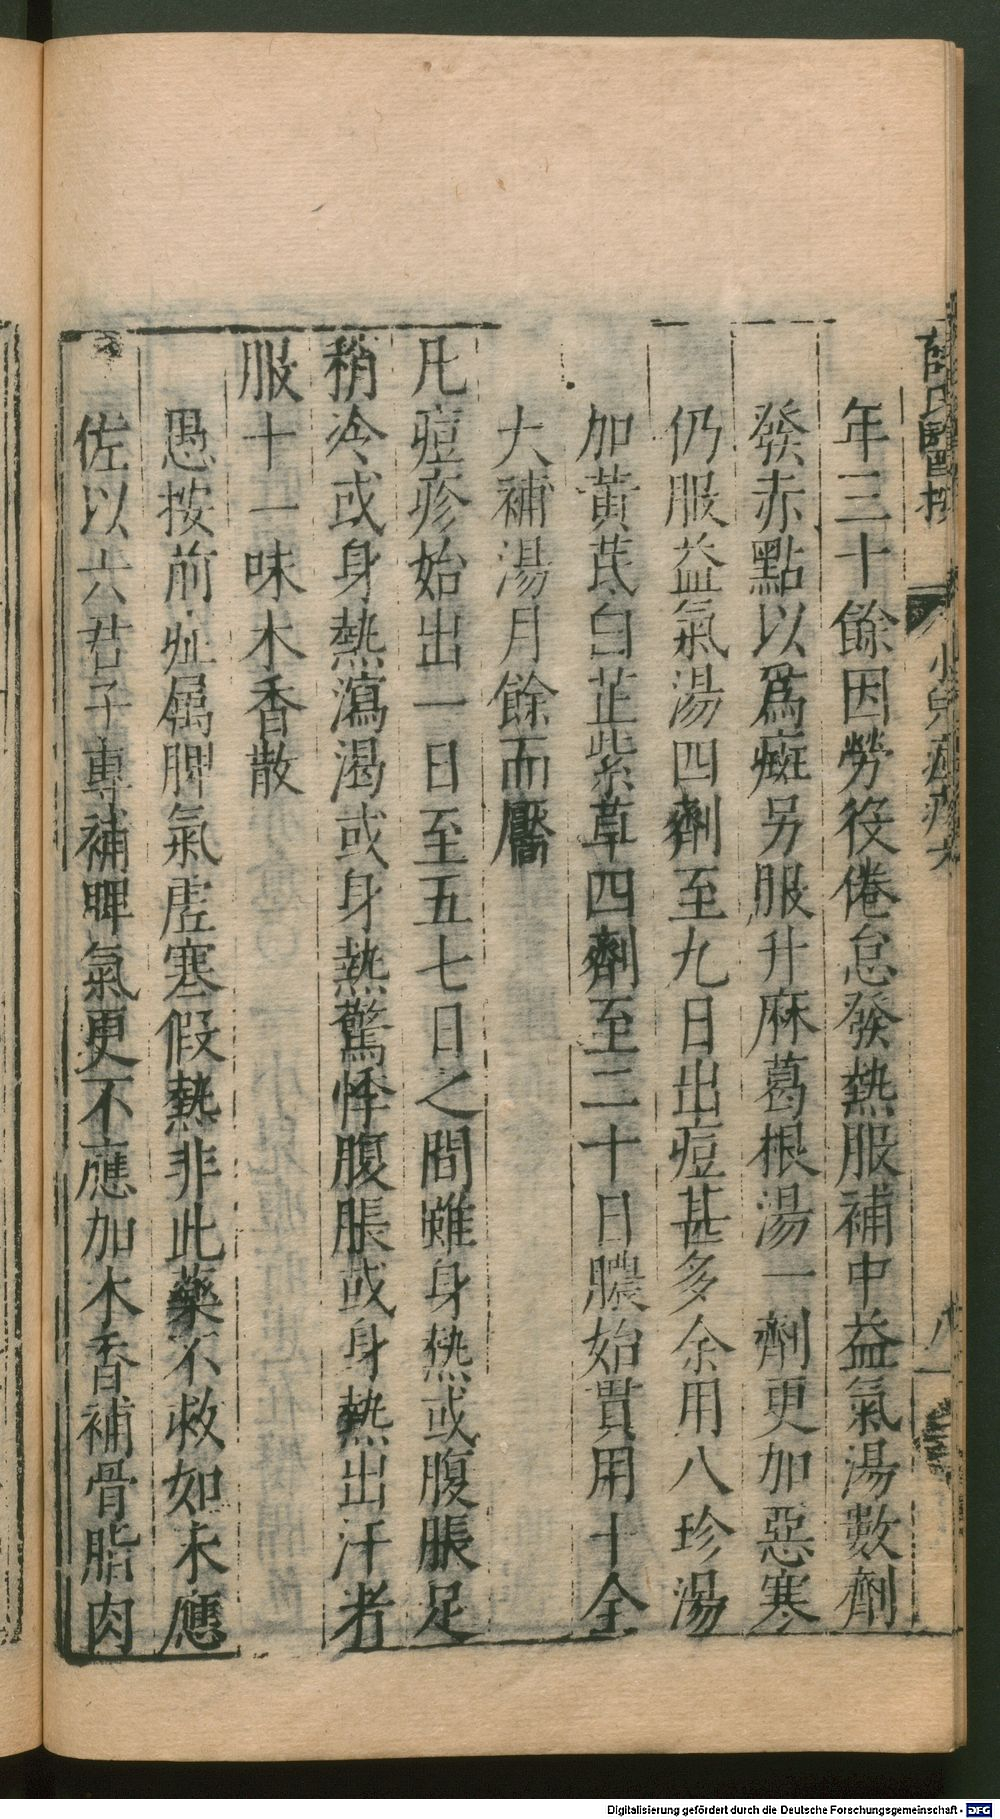 薛氏醫按 小兒痘疹 八
年三十餘因勞役倦怠發熱服補中益氣湯數劑
發赤點以爲癍另服升麻葛根湯一劑更加惡寒
仍服益氣湯四劑至九日出痘甚多余用八珍湯
加黃芪白芷紫草四劑至二十日膿始貫用十全
大補湯月餘而靨
凡痘疹始出一日至五七日之間雖身熱或腹脹足
稍冷或身熱瀉渴或身熱驚悸腹脹或身熱出汗者
服十一味木香散
愚按前症属脾氣虛寒假熱非此藥不救如未應
佐以六君子專補脾氣更不應加木香補骨脂肉
Digitalisierung gefördert durch die Deutsche Forschungsgemeinschaft - DFG